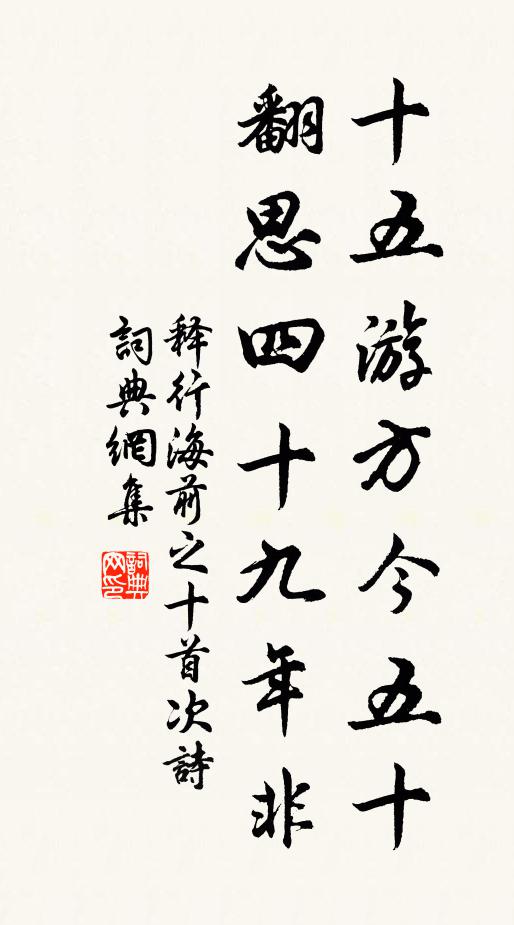 十五游方今五十
翻思四十九年非
释行海前之十首次詩
詞典網集
詞典網印